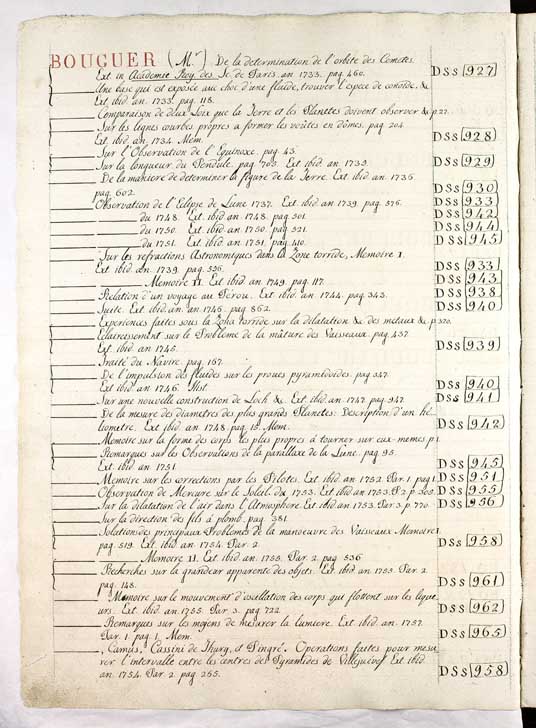 BOUGUER (Mr) De la determination de l'orbite des Cometes.
Ext in Academie Roy. des Sc. de Paris. an 1733. pag. 460. DSS 927
Une base qui est exposée au choc d'une fluide, trouver l'espece de conoïde, &c.
Ext. ibid. an. 1733. pag. 118.
Comparaison de deux Loix que la Terre et les Planetes doivent observer &c p. 22.
Sur les lignes courbes propres a former les voûtes en dômes. pag 204
Ext. ibid. an. 1734. Mem. DSS 928
Sur l'Observation de l'Equinoxe. pag 43.
Sur la longueur du Pendule. pag. 703. Ext. ibid an. 1735. DSS 929
De la maniere de determiner la figure de la Terre. Ext. ibid an. 1736
pag. 602. DSS 930
Observation de l'Eclipse de Lune 1737. Ext. ibid an 1739. pag. 376. DSS 933
du 1748. Ext. ibid an 1748. pag 301. DSS 942
du 1750. Ext. ibid an 1750. pag 321. DSS 944
du 1751. Ext. ibid an 1751. pag. 410. DSS 945
Sur les refractions Astronomiques dans la Zone torride, Memoire I.
Ext. ibid. an. 1739. pag. 536. DSS 933
Memoire II. Ext ibid an 1749. pag. 117. DSS 943
Relation d'un voyage au Perou. Ext. ibid an. 1744. pag. 343. DSS 938
Suite. Ext. ibid. an. an 1746. pag 862. DSS 940
Experiences faites sous la Zone torride sur la dilatation &c des metaux &c p. 320.
Eclaircissement sur le Problême de la mâture des Vaisseaux. pag 437
Ext. ibid an 1745. DSS 939
Traité du Navire. pag 167.
De l'impulsion des fluides sur les proues pyramidoïdes. pag 347.
Ext. ibid an 1746. Hist. DSS 940
Sur une nouvelle construction de Loch &c. Ext. ibid. an 1747 pag. 947. DSS 941
De la mesure des diametres des plus grands Planetes: Description d'un hé-
liometre. Ext. ibid an. 1748. pag. 15. Mem. DSS 942
Memoire sur la forme des corps les plus propres à tourner sur eux-memes p. 1
Remarques sur les Observations de la parallaxe de la Lune. pag. 95.
Ext. ibid. an 1751 DSS 945
Memoire sur les corrections par les Pilotes. Ext ibid an 1752 Par. 1. pag 1. DSS 951
Observation de Mercure sur le Soleil du 1753. Ext. ibid an 1753. P. 2 p. 305. DSS 955
Sur la dilatation de l'air dans l'Atmosphere. Ext. ibid an 1753. Par. 3. p. 770. DSS 956
Sur la direction des fils à plomb. pag. 381.
Solution des principaux Problêmes de la manoeuvre des Vaisseaux Memoire I
pag. 519. Ext. ibid. an 1754. Par. 2. DSS 958
Memoire II. Ext ibid an. 1755. Par. 2. pag. 536
Recherches sur la grandeur apparente des objets. Ext. ibid an 1755. Par. 2.
pag. 148. DSS 961
Memoire sur le mouvement d'oscillation des corps qui flottent sur les lique-
urs. Ext. ibid. an. 1755. Par. 3. pag. 722. DSS 962
Remarques sur les moiens de mesurer la lumiere. Ext. ibid an. 1757.
Par. 1. pag. 1. Mem. DSS 965
, Camus, Cassini de Thury, et Pingré. Operations faites pour mesu-
rer l'intervalle entre les centres des Pyramides de Villejuive &c Ext. ibid
an. 1754. Par. 2. pag 255. DSS 958